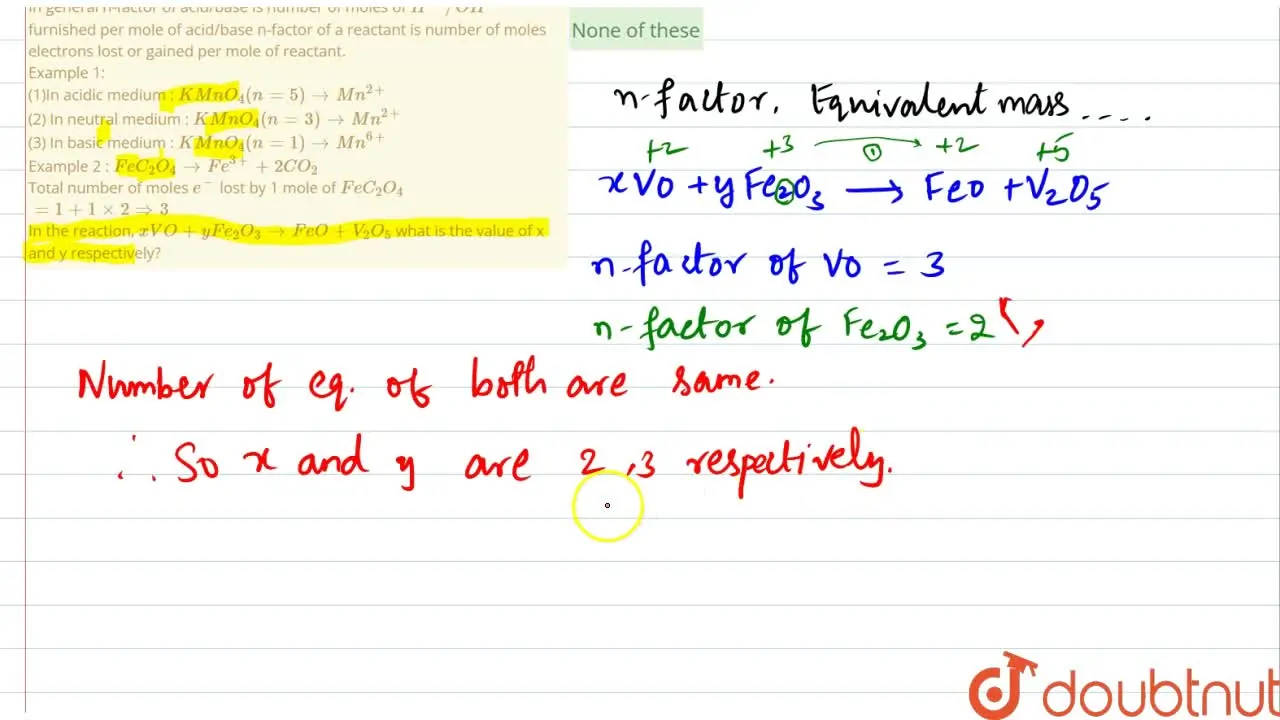 In general n-factor of acid/base is number of moles of H⁺/OH⁻
furnished per mole of acid/base n-factor of a reactant is number of moles
electrons lost or gained per mole of reactant.
Example 1:
(1)In acidic medium : KMnO₄(n = 5) → Mn²⁺
(2) In neutral medium : KMnO₄(n = 3) → Mn²⁺
(3) In basic medium : KMnO₄(n = 1) → Mn⁶⁺
Example 2 : FeC₂O₄ → Fe³⁺ + 2CO₂
Total number of moles e⁻ lost by 1 mole of FeC₂O₄
= 1 + 1 × 2 ⇒ 3
In the reaction, xVO + yFe₂O₃ → FeO + V₂O₅ what is the value of x
and y respectively?
None of these
n-factor, Equivalent mass ....
+2 +3 ① +2 +5
xVO + yFe₂O₃ → FeO + V₂O₅
n-factor of VO = 3
n-factor of Fe₂O₃ = 2
Number of eq. of both are same.
∴ So x and y are 2, 3 respectively.
doubtnut